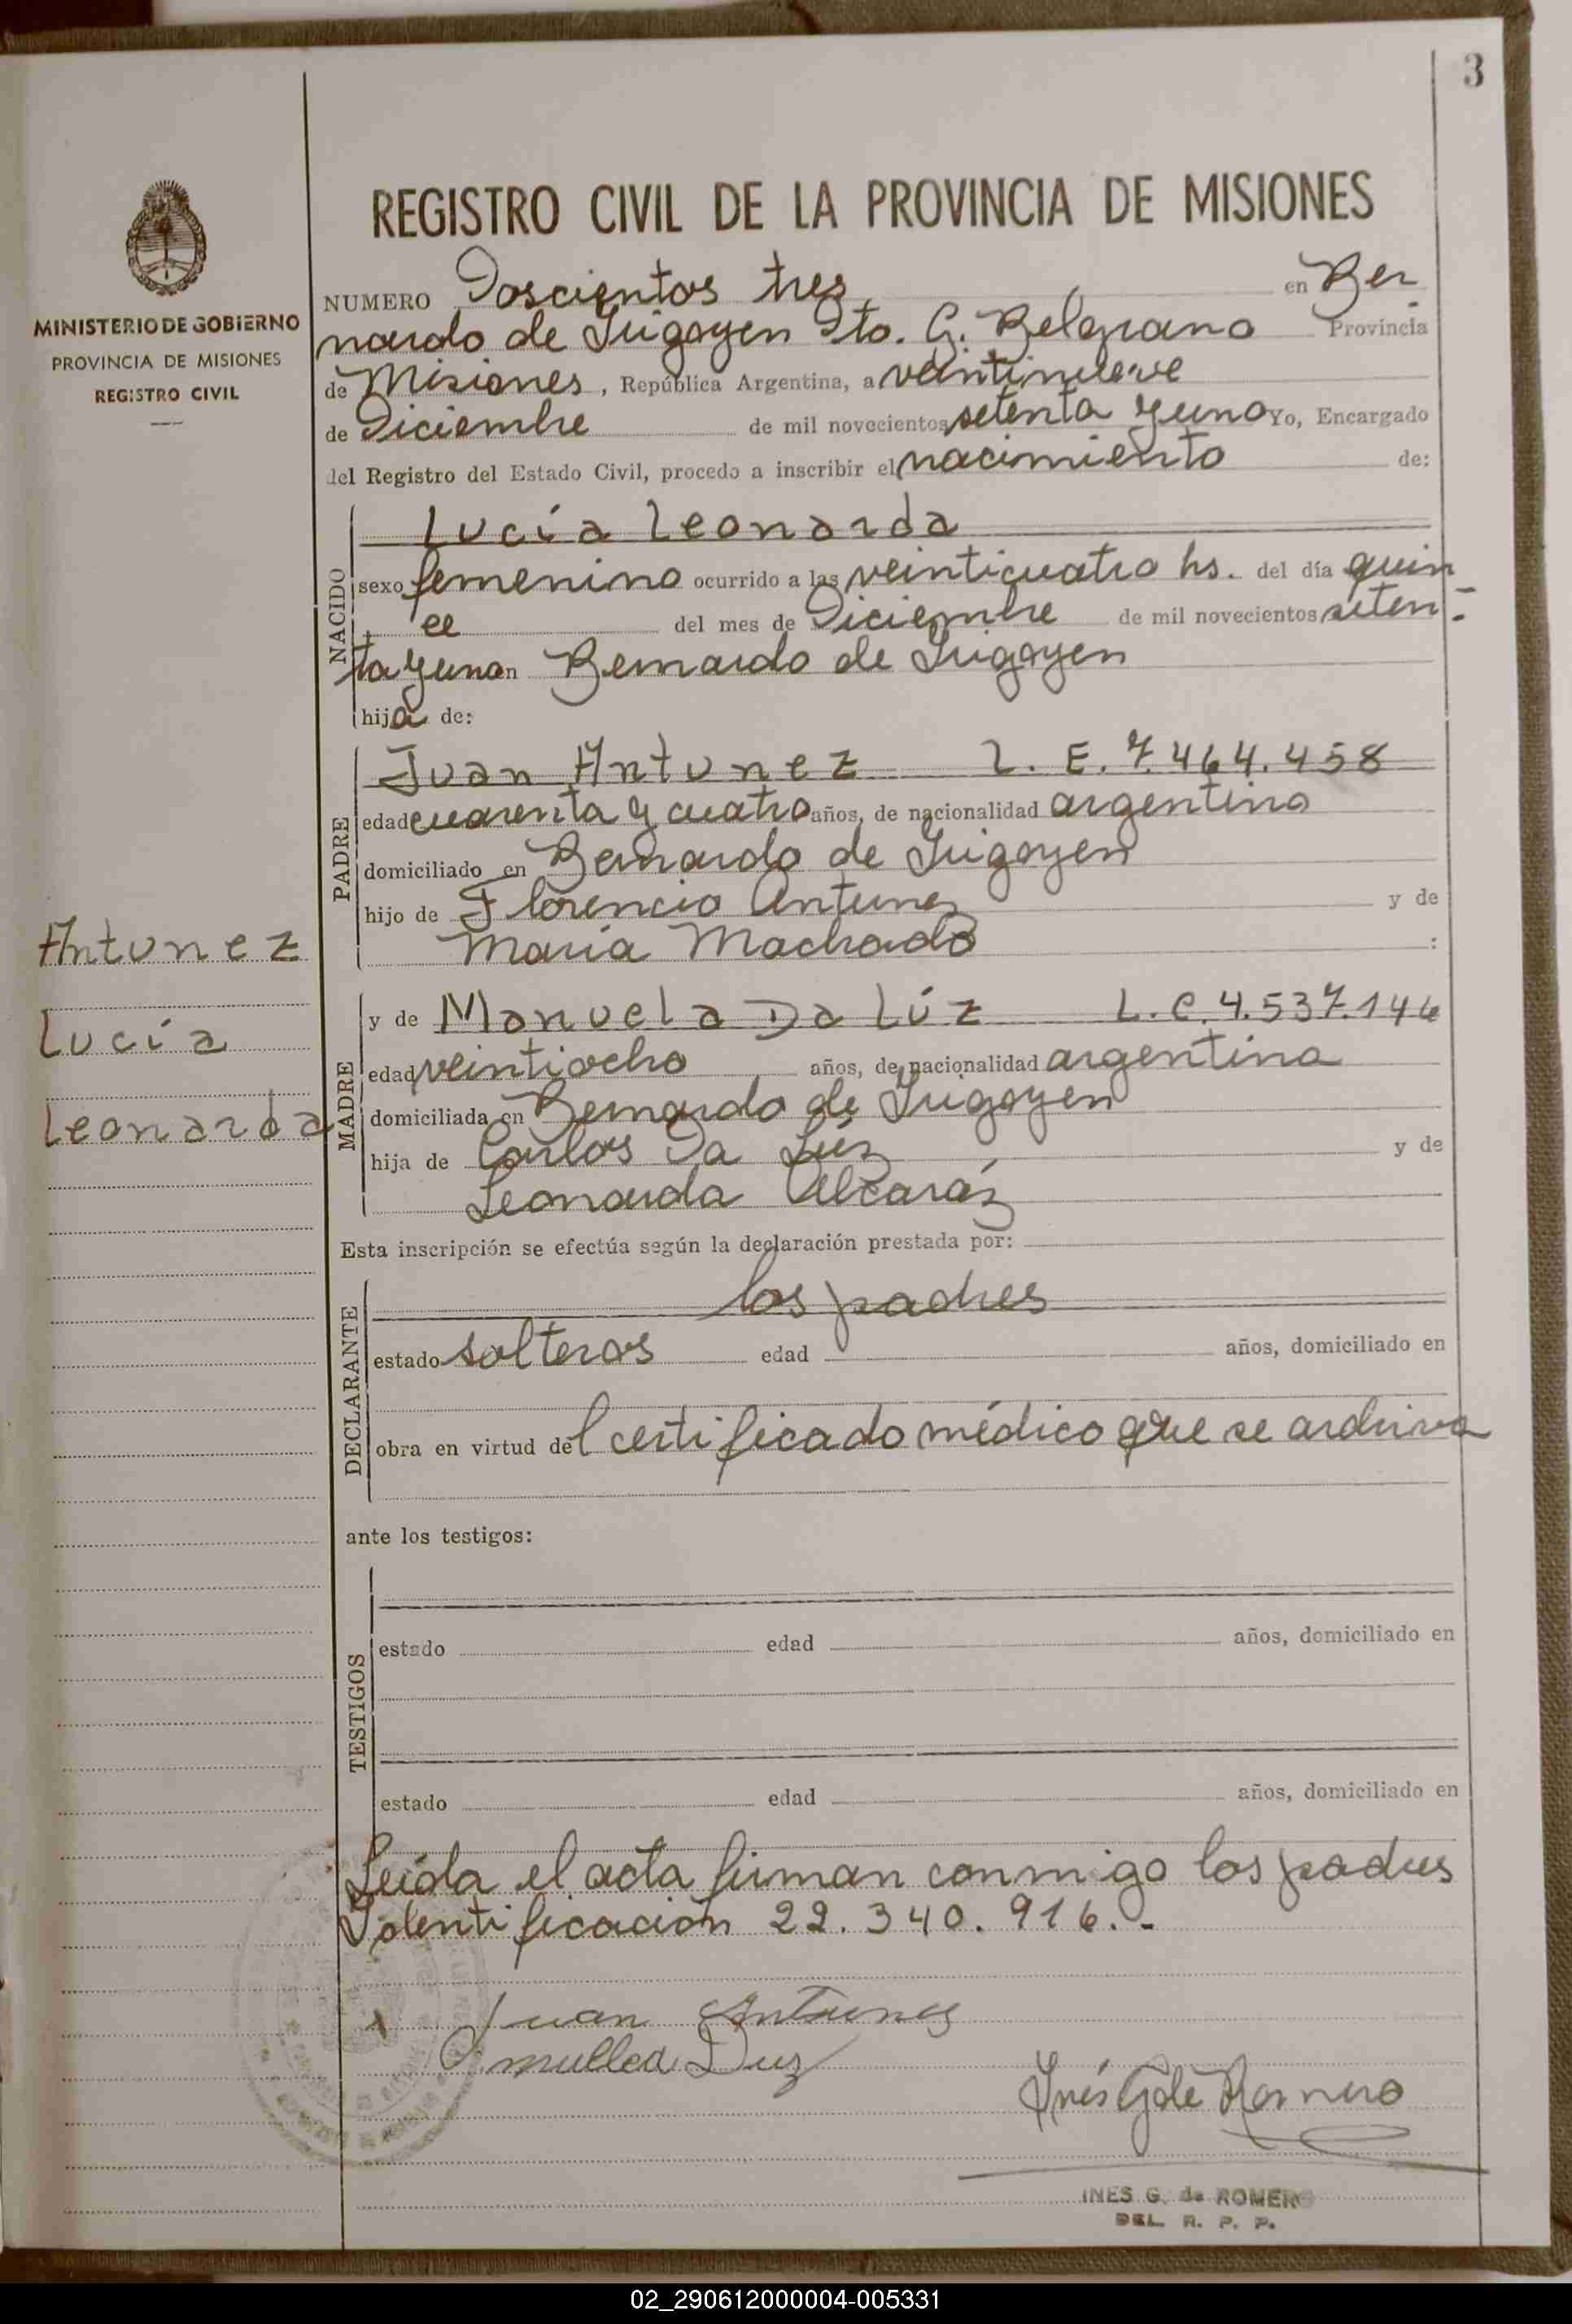 3
MINISTERIO DE GOBIERNO
PROVINCIA DE MISIONES
REGISTRO CIVIL
Antunez
Lucía
Leonarda
REGISTRO CIVIL DE LA PROVINCIA DE MISIONES
NUMERO Doscientos tres en Ber
nardo de Irigoyen Dto. G. Belgrano Provincia
de Misiones, República Argentina, a veintinueve
de Diciembre de mil novecientos setenta y uno Yo, Encargado
del Registro del Estado Civil, procedo a inscribir el nacimiento de:
NACIDO
Lucía Leonarda
sexo femenino ocurrido a las veinticuatro hs. del día quin
ce del mes de Diciembre de mil novecientos seten-
ta y uno en Bernardo de Irigoyen
hija de:
PADRE
Juan Antunez L. E. 7.464.458
edad cuarenta y cuatro años, de nacionalidad argentino
domiciliado en Bernardo de Irigoyen
hijo de Florencio Antunez y de
Maria Machado :
MADRE
y de Manuela Da Lúz L. C. 4.537.146
edad veintiocho años, de nacionalidad argentina
domiciliada en Bernardo de Irigoyen
hija de Carlos Da Lúz y de
Leonarda Alcaráz
Esta inscripción se efectúa según la declaración prestada por:
DECLARANTE
los padres
estado solteros edad años, domiciliado en
obra en virtud del certificado médico que se archiva
ante los testigos:
TESTIGOS
estado edad años, domiciliado en
estado edad años, domiciliado en
Leida el acta firman conmigo los padres
Identificación 22.340.916.-
x Juan Antunes
Inés G de Romero
INES G. de ROMERO
DEL. R. P. P.
02_290612000004-005331